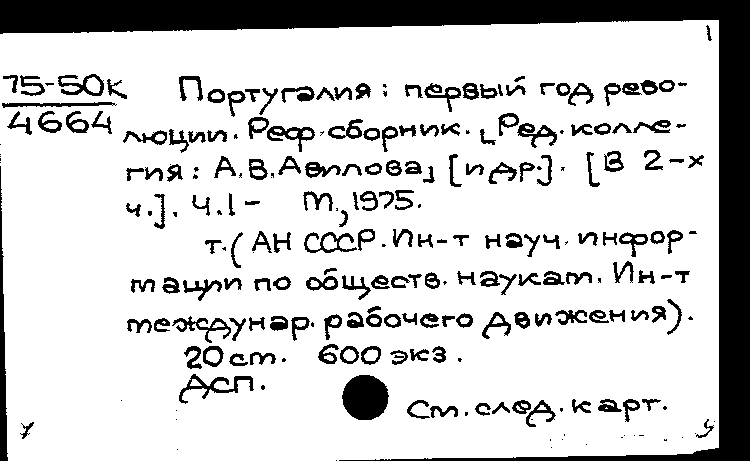 1
75-50к Португалия: первый год рево-
4664 люции. Реф. сборник. [Ред. колле-
гия: А.В. Авилова] [и др.]. [В 2-х
ч.]. Ч.1- М., 1975.
т. (АН СССР. Ин-т науч. инфор-
мации по обществ. наукам. Ин-т
междунар. рабочего движения).
20 см. 600 экз.
ДСП.
См. след. карт.